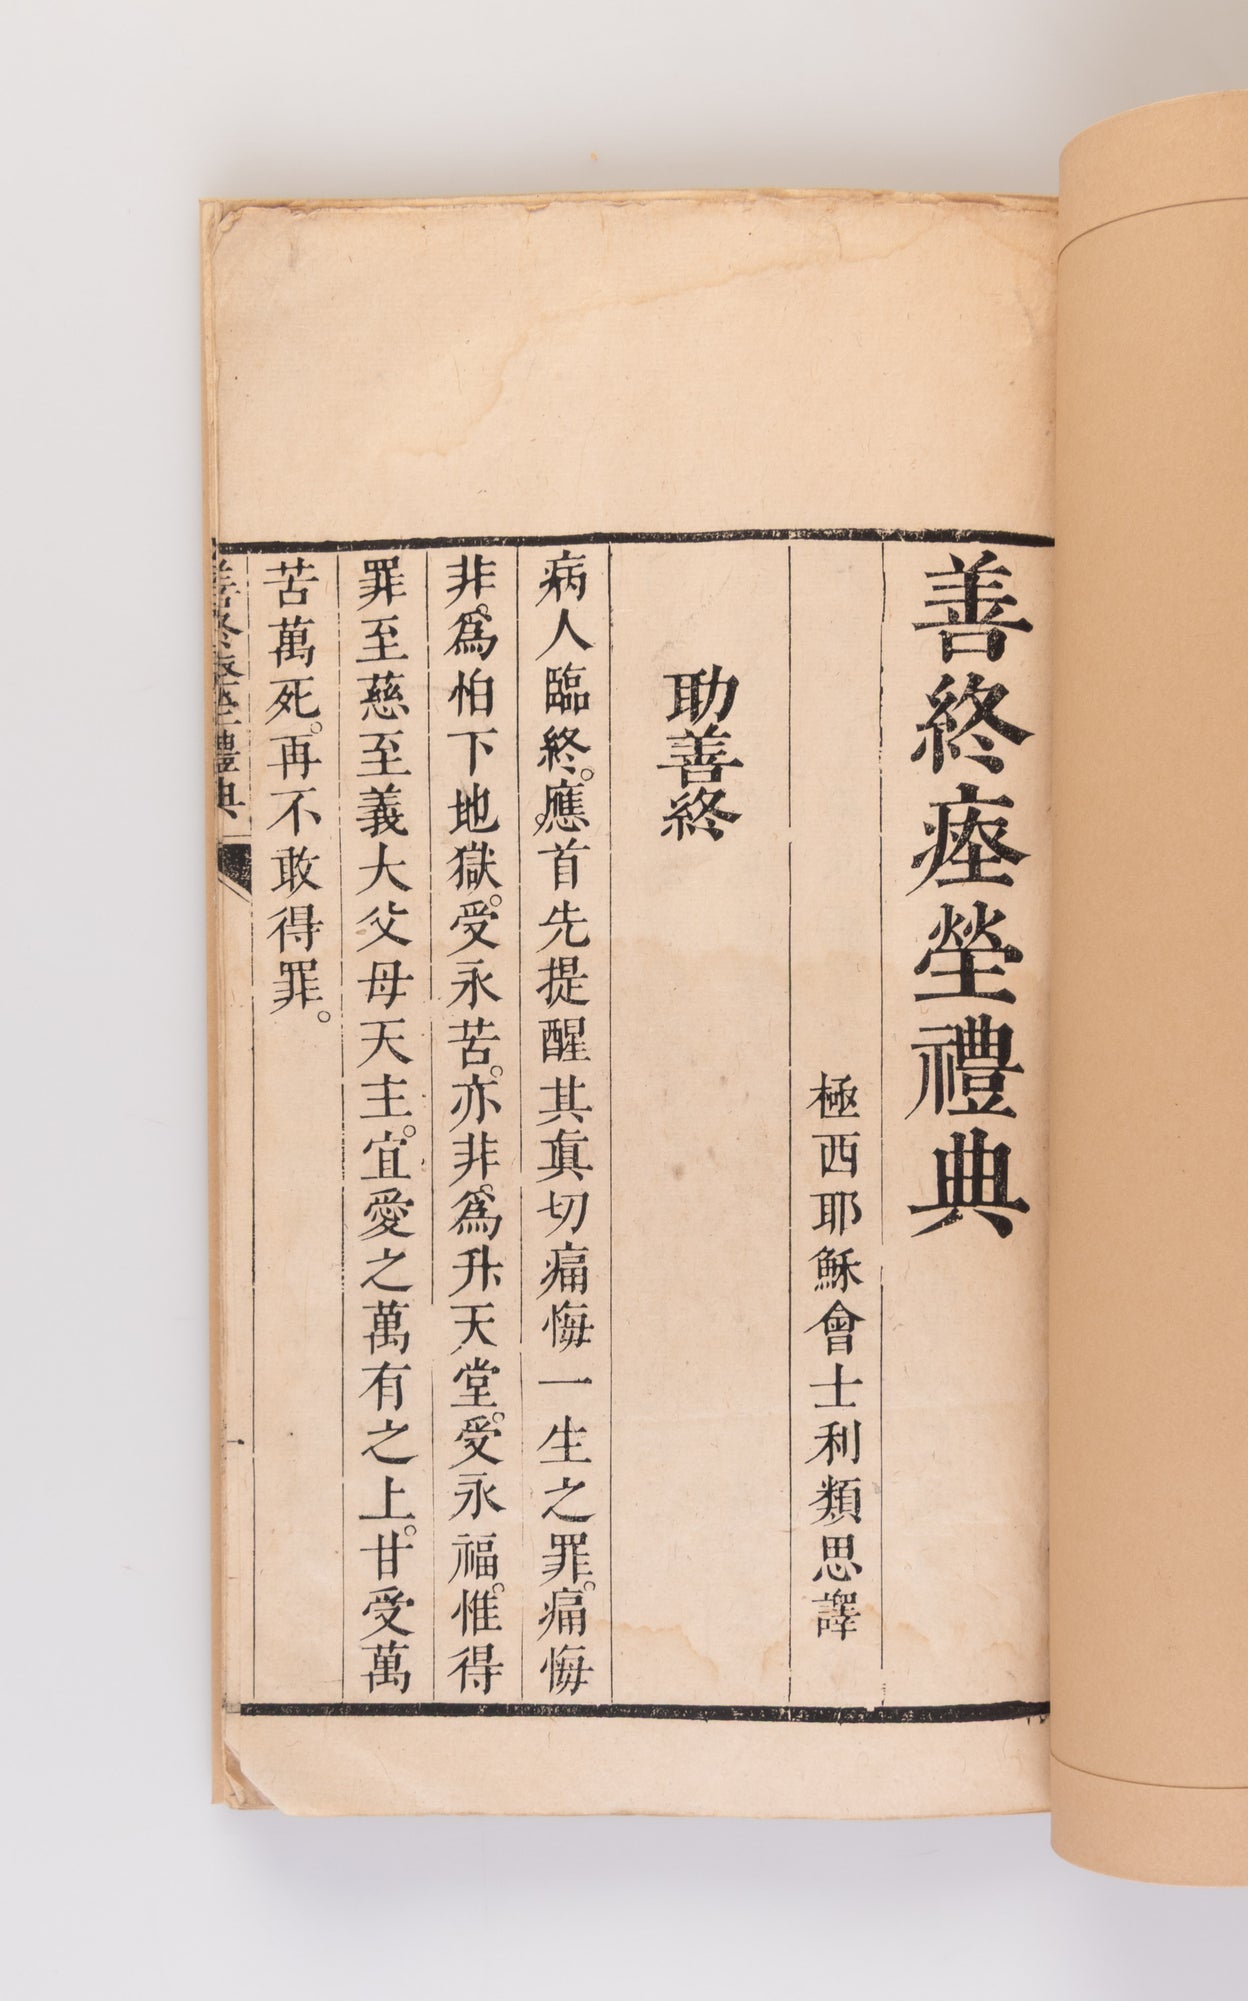 善終瘞塋禮典
極西耶穌會士利類思譯
助善終
病人臨終。應首先提醒其眞切痛悔一生之罪。痛悔
非。爲怕下地獄。受永苦。亦非。爲升天堂。受永福。惟得
罪至慈至義大父母天主。宜愛之萬有之上。甘受萬
苦萬死。再不敢得罪。
善終瘞塋禮典
一